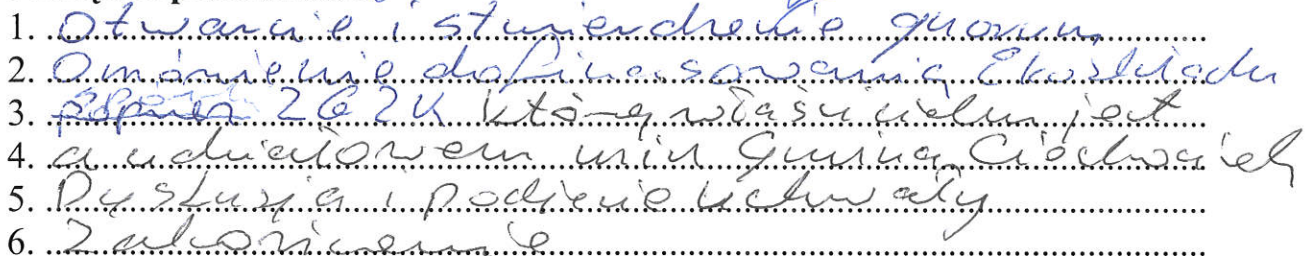 1. Otwarcie i stwierdzenie quorum
2. Omówienie dofinasowania Ekoskładu
3. ZGZK którego właścicielem jest
4. a udziałowcem min Gmina Ciechocinek
5. Dyskusja i podjęcie uchwały
6. Zakończenie